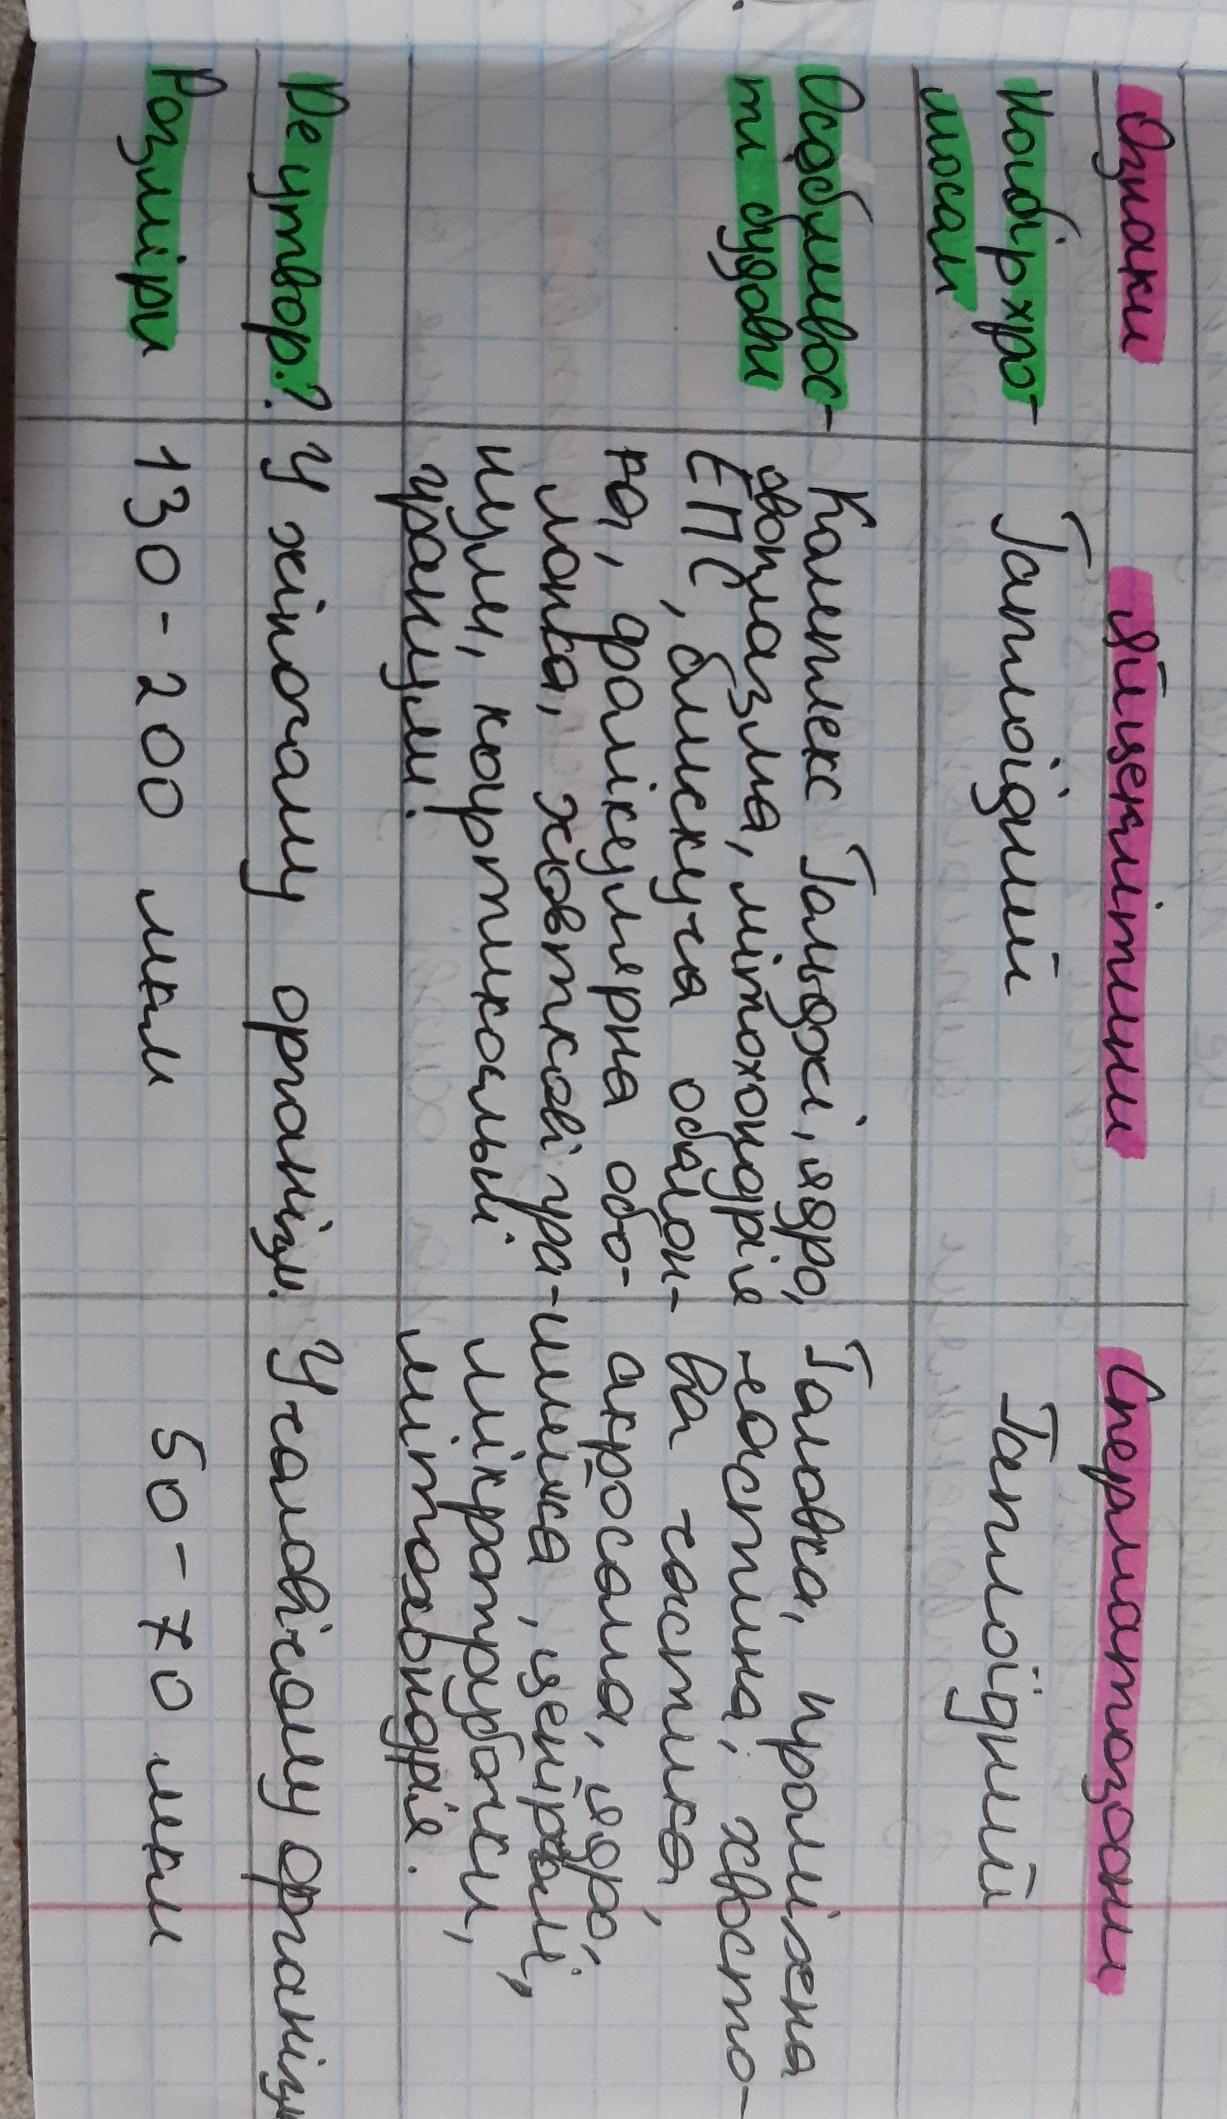 Ознаки
Яйцеклітини
Сперматозони
Набір хро-
мосом
Гаплоїдний
Гаплоїдний
Особливос-
ті будови
Комплекс Гольджі, ядро,
овоплазма, мітохондрія
ЕПС, блискуча оболон-
ка, фолікулярна обо-
лонка, жовткові гра-
нули, кортикальні
гранули.
Головка, проміжна
частина, хвосто-
ва частика,
акросома, ядро,
шийка, центролі,
мікротрубочки,
мітохондрія.
Де утвор.?
У жіночому організм.
У чоловічому організм
Розміри
130-200 мкм
50-70 мкм